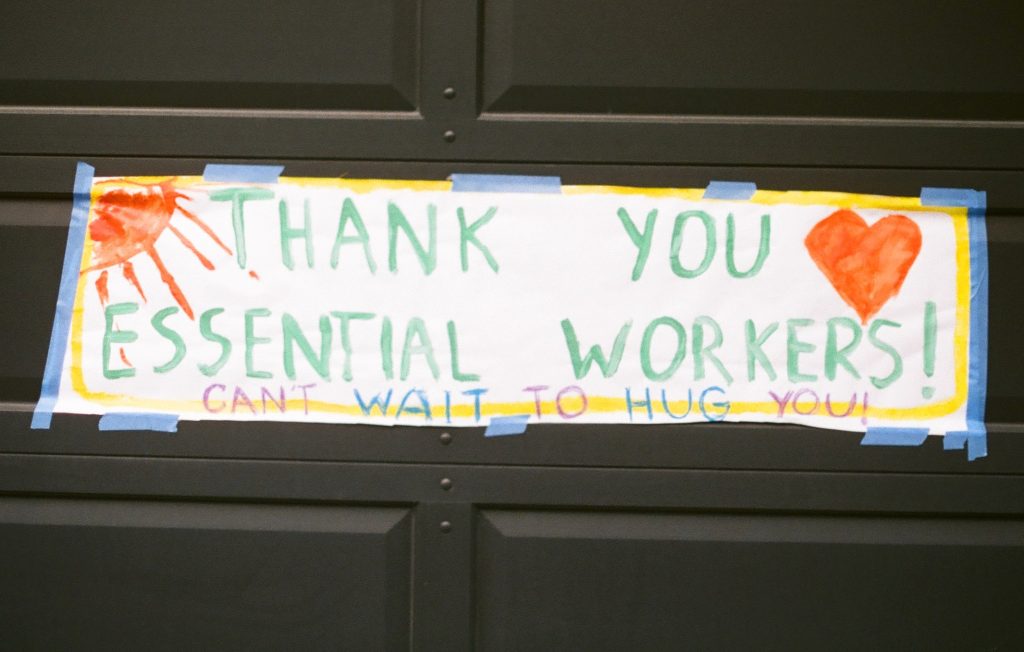 THANK YOU
ESSENTIAL WORKERS!
CAN'T WAIT TO HUG YOU!